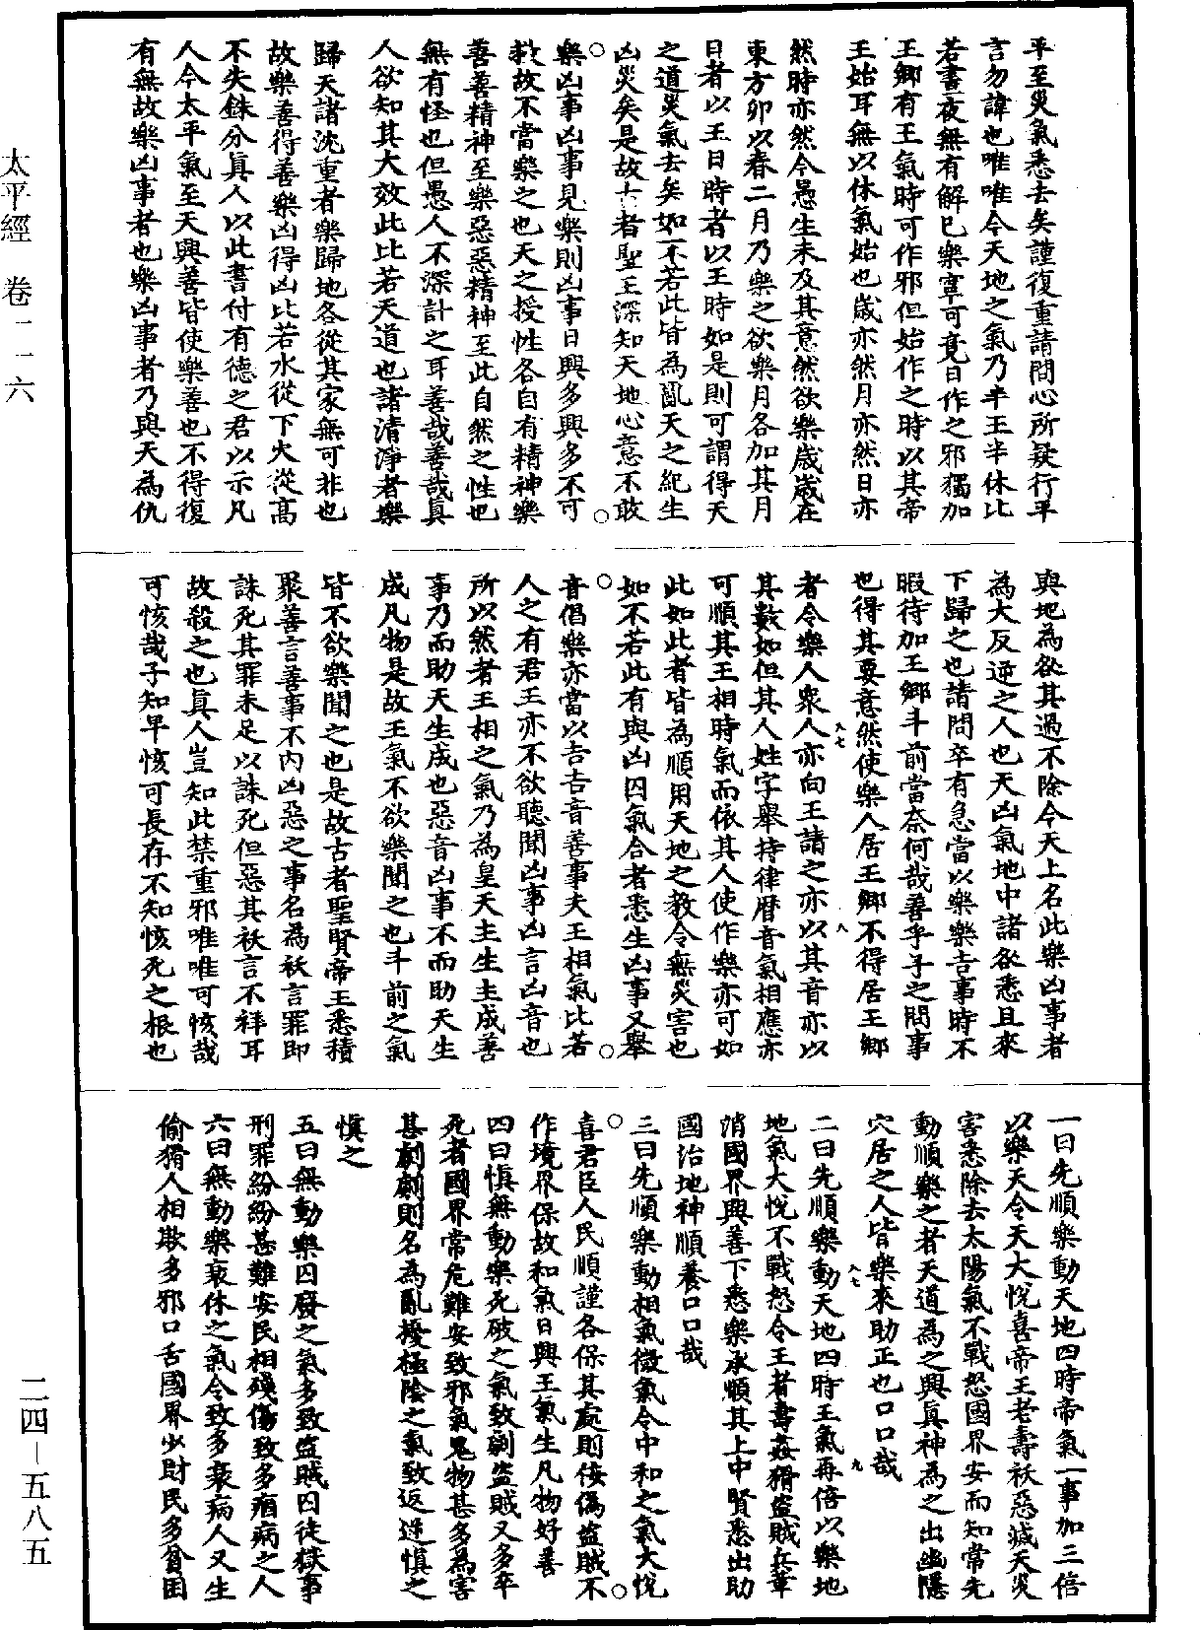 太平經　卷一一六
平至災氣悉去矣謹復重請問心所疑行平
言勿諱也唯唯今天地之氣乃半王半休比
若晝夜無有解已樂寧可竟日作之邪獨加
王鄉有王氣時可作邪但始作之時以其帝
王始耳無以休氣始也歲亦然月亦然日亦
然時亦然今愚生未及其意然欲樂歲歲在
東方卯以春二月乃樂之欲樂月各加其月
日者以王日時者以王時如是則可謂得天
之道災氣去矣如不若此皆為亂天之紀生
凶災矣是故古者聖王深知天地心意不敢
樂凶事凶事見樂則凶事日興多興多不可
救故不當樂之也天之授性各自有精神樂
善善精神至樂惡惡精神至此自然之性也
無有怪也但愚人不深計之耳善哉善哉真
人欲知其大效此比若天道也諸清淨者樂
歸天諸沈重者樂歸地各從其家無可非也
故樂善得善樂凶得凶比若水從下火從高
不失銖分真人以此書付有德之君以示凡
人今太平氣至天興善皆使樂善也不得復
有無故樂凶事者也樂凶事者乃與天為仇
與地為郄其過不除今天上名此樂凶事者
為大反逆之人也天凶氣地中諸郄悉且來
下歸之也請問卒有急當以樂樂吉事時不
暇待加王鄉斗前當奈何哉善乎子之問事
也得其要意然使樂人居王鄉不得居王鄉
者令樂人衆人亦向王諸之亦以其音亦以
其數如但其人姓字舉持律曆音氣相應亦
可順其王相時氣而依其人使作樂亦可如
此如此者皆為順用天地之教令無災害也
如不若此有與凶囚氣合者悉生凶事又舉
音倡樂亦當以吉吉音善事夫王相氣比若
人之有君王亦不欲聽聞凶事凶言凶音也
所以然者王相之氣乃為皇天主生主成善
事乃而助天生成也惡音凶事不而助天生
成凡物是故王氣不欲樂聞之也斗前之氣
皆不欲樂聞之也是故古者聖賢帝王悉積
聚善言善事不內凶惡之事名為祅言罪即
誅死其罪未足以誅死但惡其祅言不祥耳
故殺之也真人豈知此禁重邪唯唯可怪哉
可怪哉子知早怪可長存不知怪死之根也
一曰先順樂動天地四時帝氣一事加三倍
以樂天令天大悅喜帝王老壽祅惡滅天災
害悉除去太陽氣不戰怒國界安而知常先
動順樂之者天道為之興真神為之出幽隱
穴居之人皆樂來助正也口口哉
二曰先順樂動天地四時王氣再倍以樂地
地氣大悅不戰怒令王者壽姦猾盜賊兵革
消國界興善下悉樂承順其上中賢悉出助
國治地神順養口口哉
三曰先順樂動相氣微氣令中和之氣大悅
喜君臣人民順謹各保其處則佞偽盜賊不
作境界保故和氣日興王氣生凡物好善
四曰慎無動樂死破之氣致劇盜賊又多卒
死者國界常危難安致邪氣鬼物甚多為害
甚劇劇則名為亂擾極陰之氣致返逆慎之
慎之
五曰無動樂囚廢之氣多致盜賊囚徒獄事
刑罪紛紛甚難安民相殘傷致多痼病之人
六曰無動樂衰休之氣令致多衰病人又生
偷猾人相欺多邪口舌國界少財民多貧困
二四－五八五